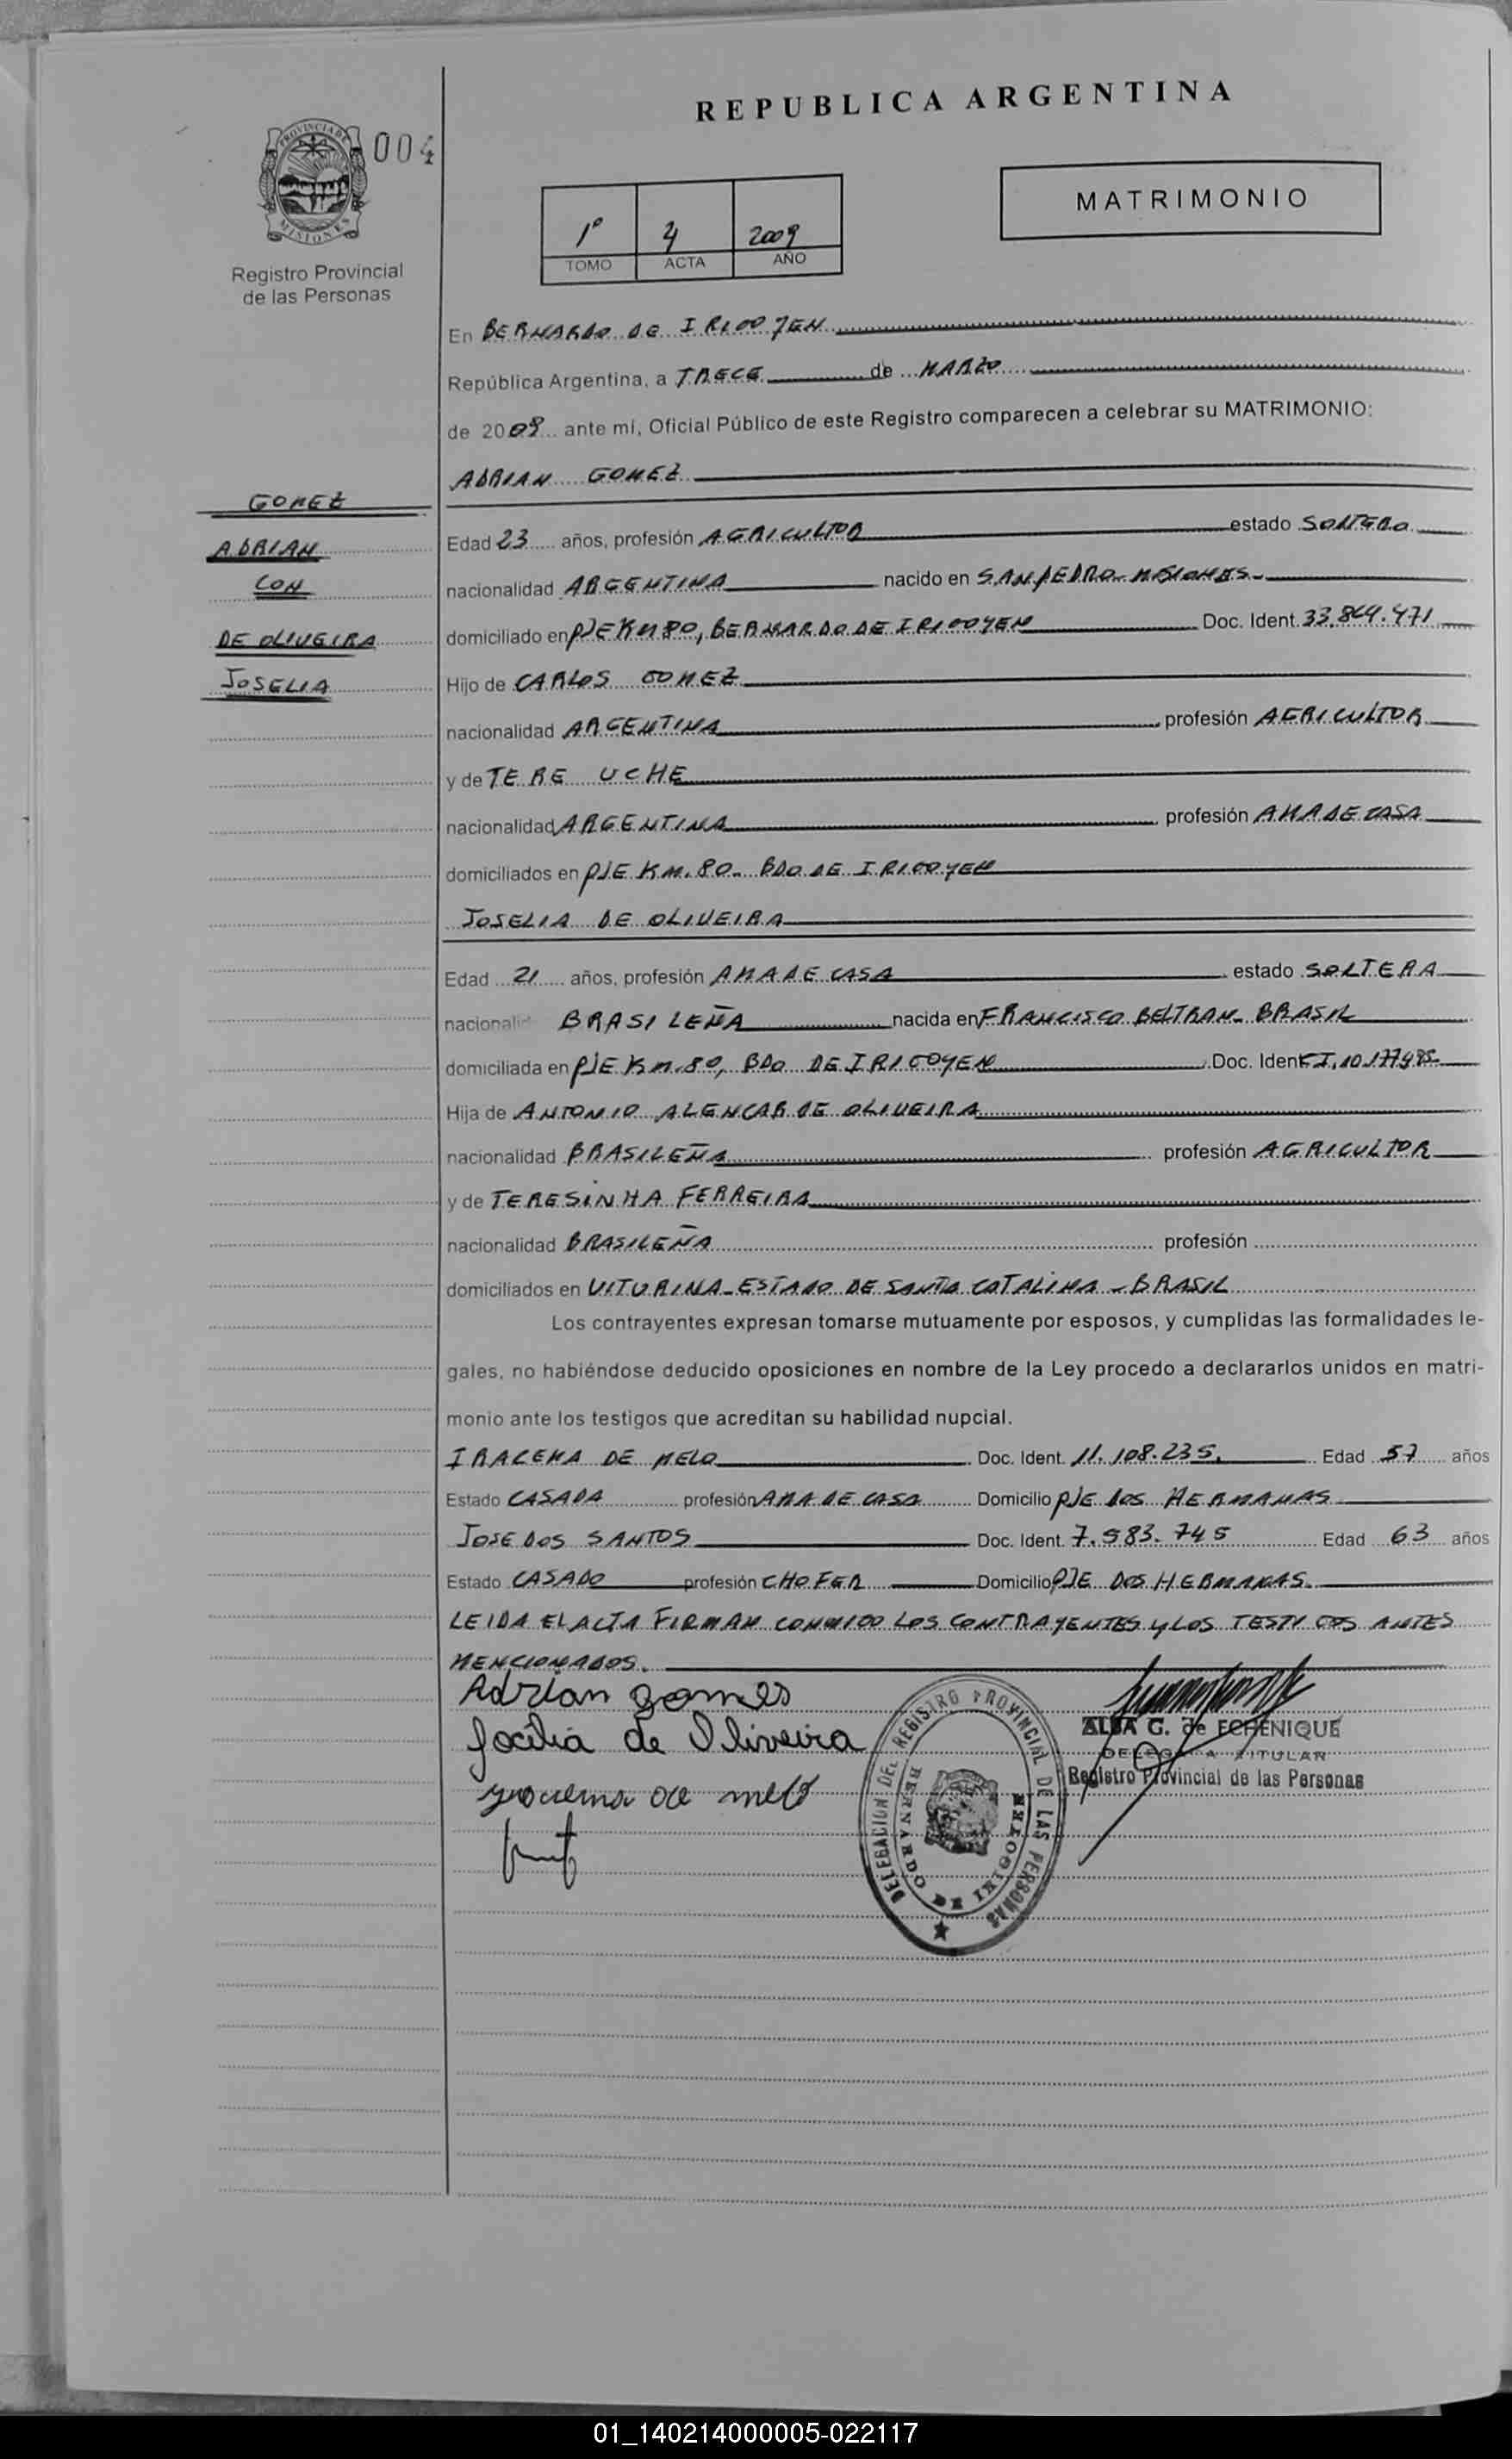 REPUBLICA ARGENTINA
PROVINCIA DE MISIONES
004
Registro Provincial
de las Personas
MATRIMONIO
1º 4 2009
TOMO ACTA AÑO
En BERNARDO DE IRIGOYEN
República Argentina, a TRECE de MARZO
de 2009 ante mí, Oficial Público de este Registro comparecen a celebrar su MATRIMONIO:
ADRIAN GOMEZ
GOMEZ
ADRIAN
CON
DE OLIVEIRA
JOSELIA
Edad 23 años, profesión AGRICULTOR estado SOLTERO
nacionalidad ARGENTINA nacido en SAN PEDRO-MISIONES-
domiciliado en PJE KM 80, BERNARDO DE IRIGOYEN Doc. Ident. 33.864.471
Hijo de CARLOS GOMEZ
nacionalidad ARGENTINA profesión AGRICULTOR
y de TERE UCHE
nacionalidad ARGENTINA profesión AMA DE CASA
domiciliados en PJE KM. 80- BDO DE IRIGOYEN
JOSELIA DE OLIVEIRA
Edad 21 años, profesión AMA DE CASA estado SOLTERA
nacionalid BRASILEÑA nacida en FRANCISCO BELTRAN- BRASIL
domiciliada en PJE KM.80, BDO DE IRIGOYEN Doc. Ident C.I.
Hija de ANTONIO ALENCAR DE OLIVEIRA
nacionalidad BRASILEÑA profesión AGRICULTOR
y de TERESINHA FERREIRA
nacionalidad BRASILEÑA profesión
domiciliados en VITURINA-ESTADO DE SANTA CATALINA - BRASIL
Los contrayentes expresan tomarse mutuamente por esposos, y cumplidas las formalidades le-
gales, no habiéndose deducido oposiciones en nombre de la Ley procedo a declararlos unidos en matri-
monio ante los testigos que acreditan su habilidad nupcial.
IRACEMA DE MELO Doc. Ident. 11.108.235. Edad 57 años
Estado CASADA profesión AMA DE CASA Domicilio PJE DOS HERMANAS
JOSE DOS SANTOS Doc. Ident. 7.583.745 Edad 63 años
Estado CASADO profesión CHOFER Domicilio PJE DOS HERMANAS.
LEIDA EL ACTA FIRMAN CONMIGO LOS CONTRAYENTES Y LOS TESTIGOS ANTES
MENCIONADOS.
Adrian gomes
Jocilia de Oliveira
de melo
ALBA G. de ECHENIQUE
DELEGADA TITULAR
Registro Provincial de las Personas
DELEGACION DEL REGISTRO PROVINCIAL DE LAS PERSONAS
BERNARDO DE IRIGOYEN
01_140214000005-022117